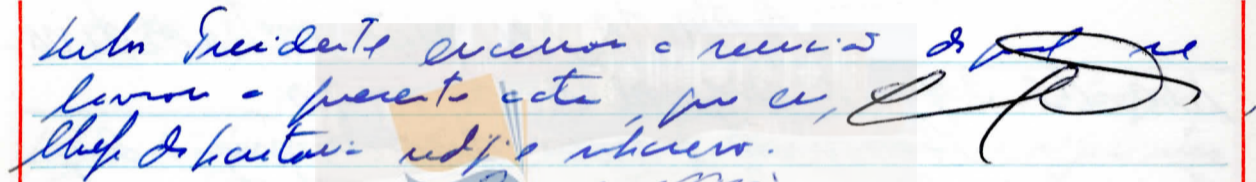 Senhor Presidente encerrou a reunião da qual se
lavrou a presente acta, que eu,
Chefe de Secretaria redigi e subscrevo.